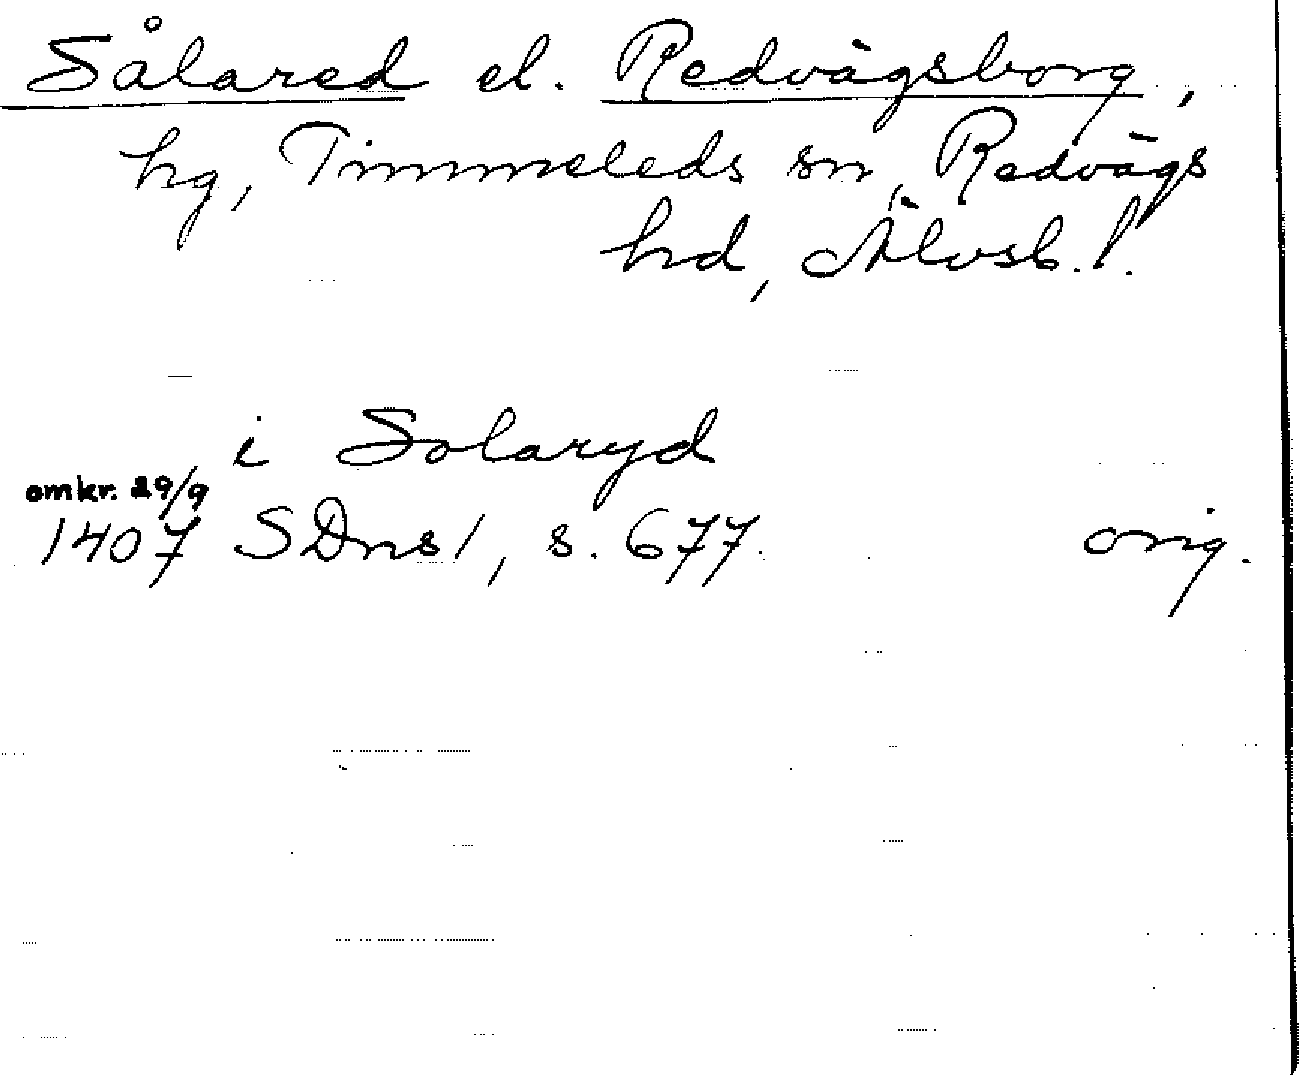 Sålared el. Redvägsborg,
hg, Timmeleds sn, Redvägs
hd, Älvsb. l.
i Solaryd
omkr. 29/9
1407 SDns 1, s. 677. orig.